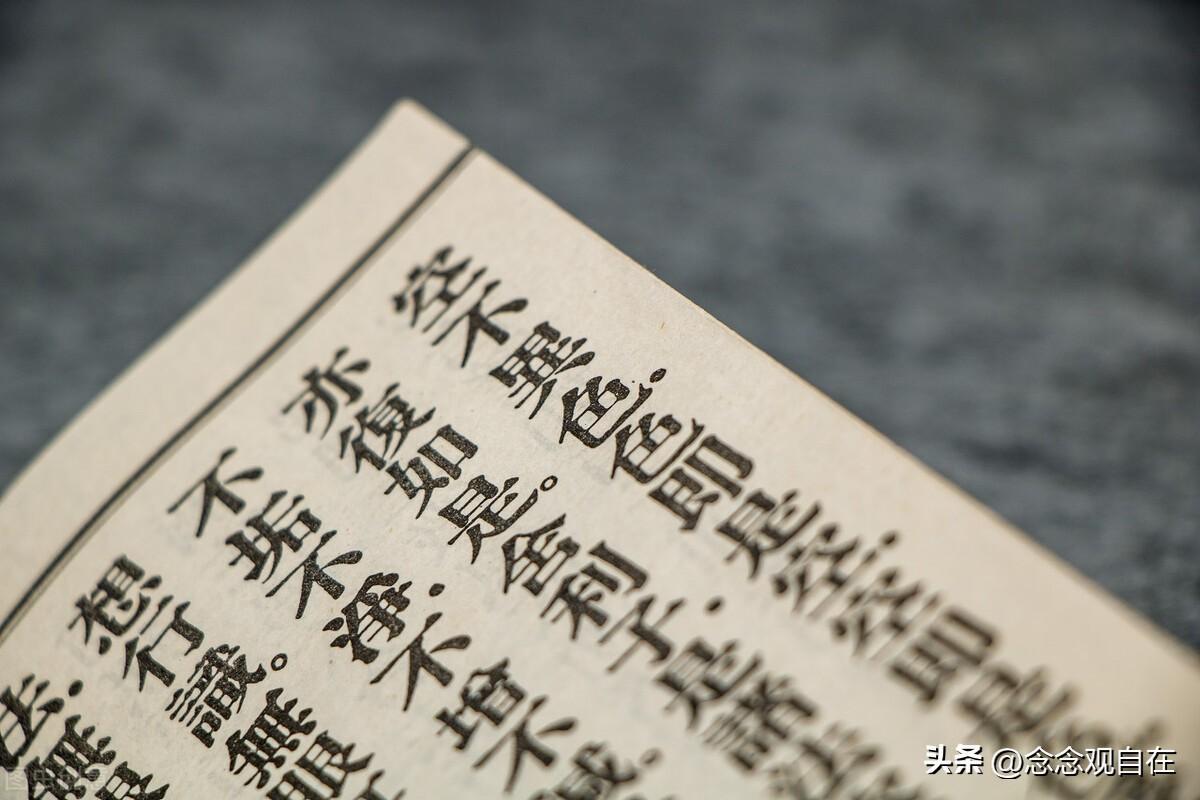 空不異色.色即是空.空即是
亦復如是。舍利子.是諸法
不垢不淨.不增不減.
想行識。無眼
法.無眼
头条 @念念观自在